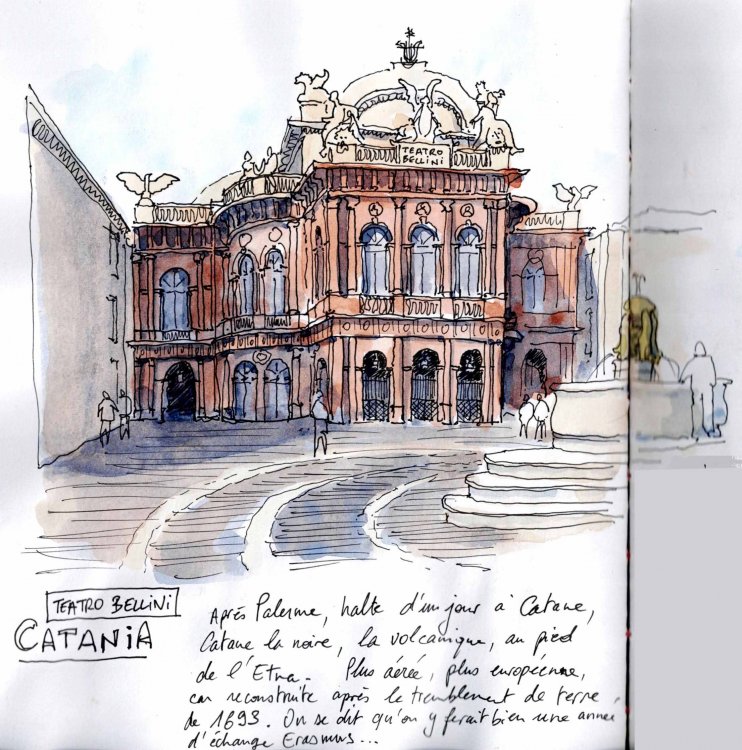 TEATRO
BELLINI
TEATRO BELLINI
CATANIA
Après Palerme, halte d'un jour à Catane,
Catane la noire, la volcanique, au pied
de l'Etna. Plus aérée, plus européenne,
car reconstruite après le tremblement de terre
de 1693. On se dit qu'on y ferait bien une année
d'échange Erasmus...